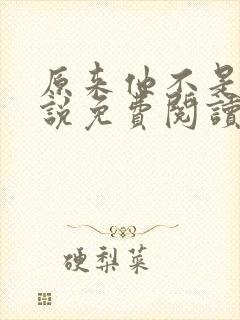 原来他不是
說免費閱讀
硬梨菜